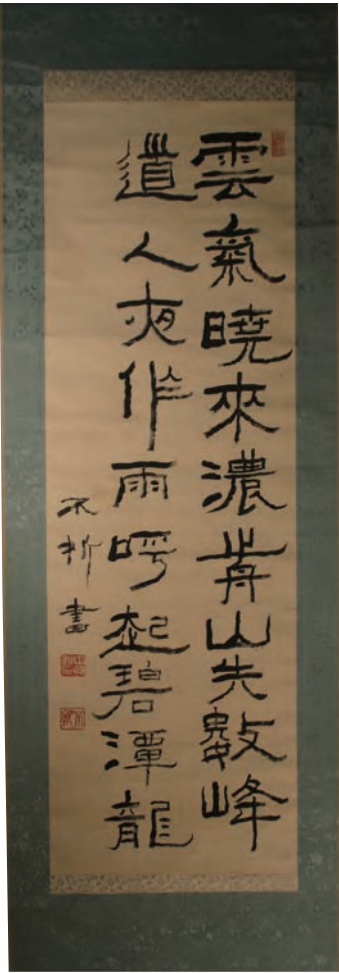 雲氣曉來濃歬山失數峰
道人夜作雨呼起碧潭龍
不折書